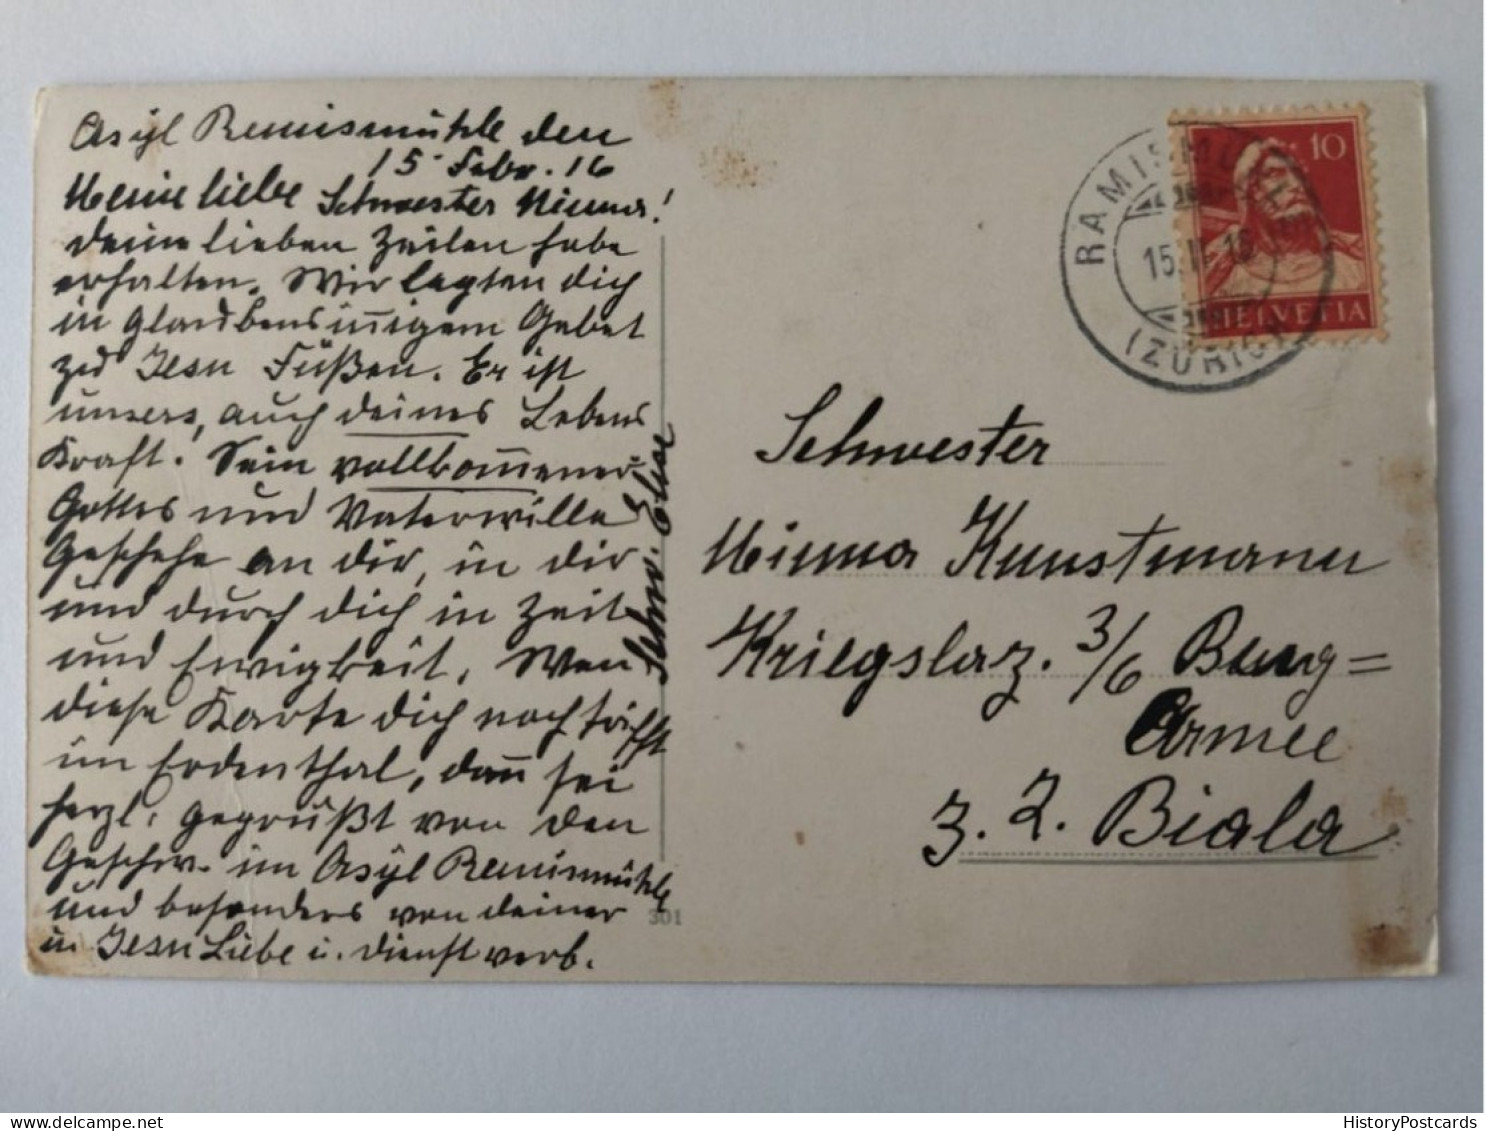 Asyl Remismühle den
15 Febr. 16
Meine liebe Schwester Minna!
Deine lieben Zeilen habe
erhalten. Wir legten dich
in Glaubensinnigem Gebet
zu Jesu Füßen. Er ist
unsers, auch deines Lebens
Kraft! Sein vollkommener
Gottes und Vaterwille
Geschehe an dir, in dir
und durch dich in Zeit
und Ewigkeit. Wen
diese Karte dich noch trifft
im Erdenthal, dann sei
herzl. gegrüßt von den
Geschw. im Asyl Remismühle
und besonders von deiner
in Jesu Liebe u. Dienst verb.
Schw. Elise
301
RAMISMÜHLE
15.II.16
(ZÜRICH)
10
HELVETIA
Schwester
Minna Kunstmann
Kriegslaz. 3/6 Bug=
Armee
z. Z. Biala
HistoryPostcards.com